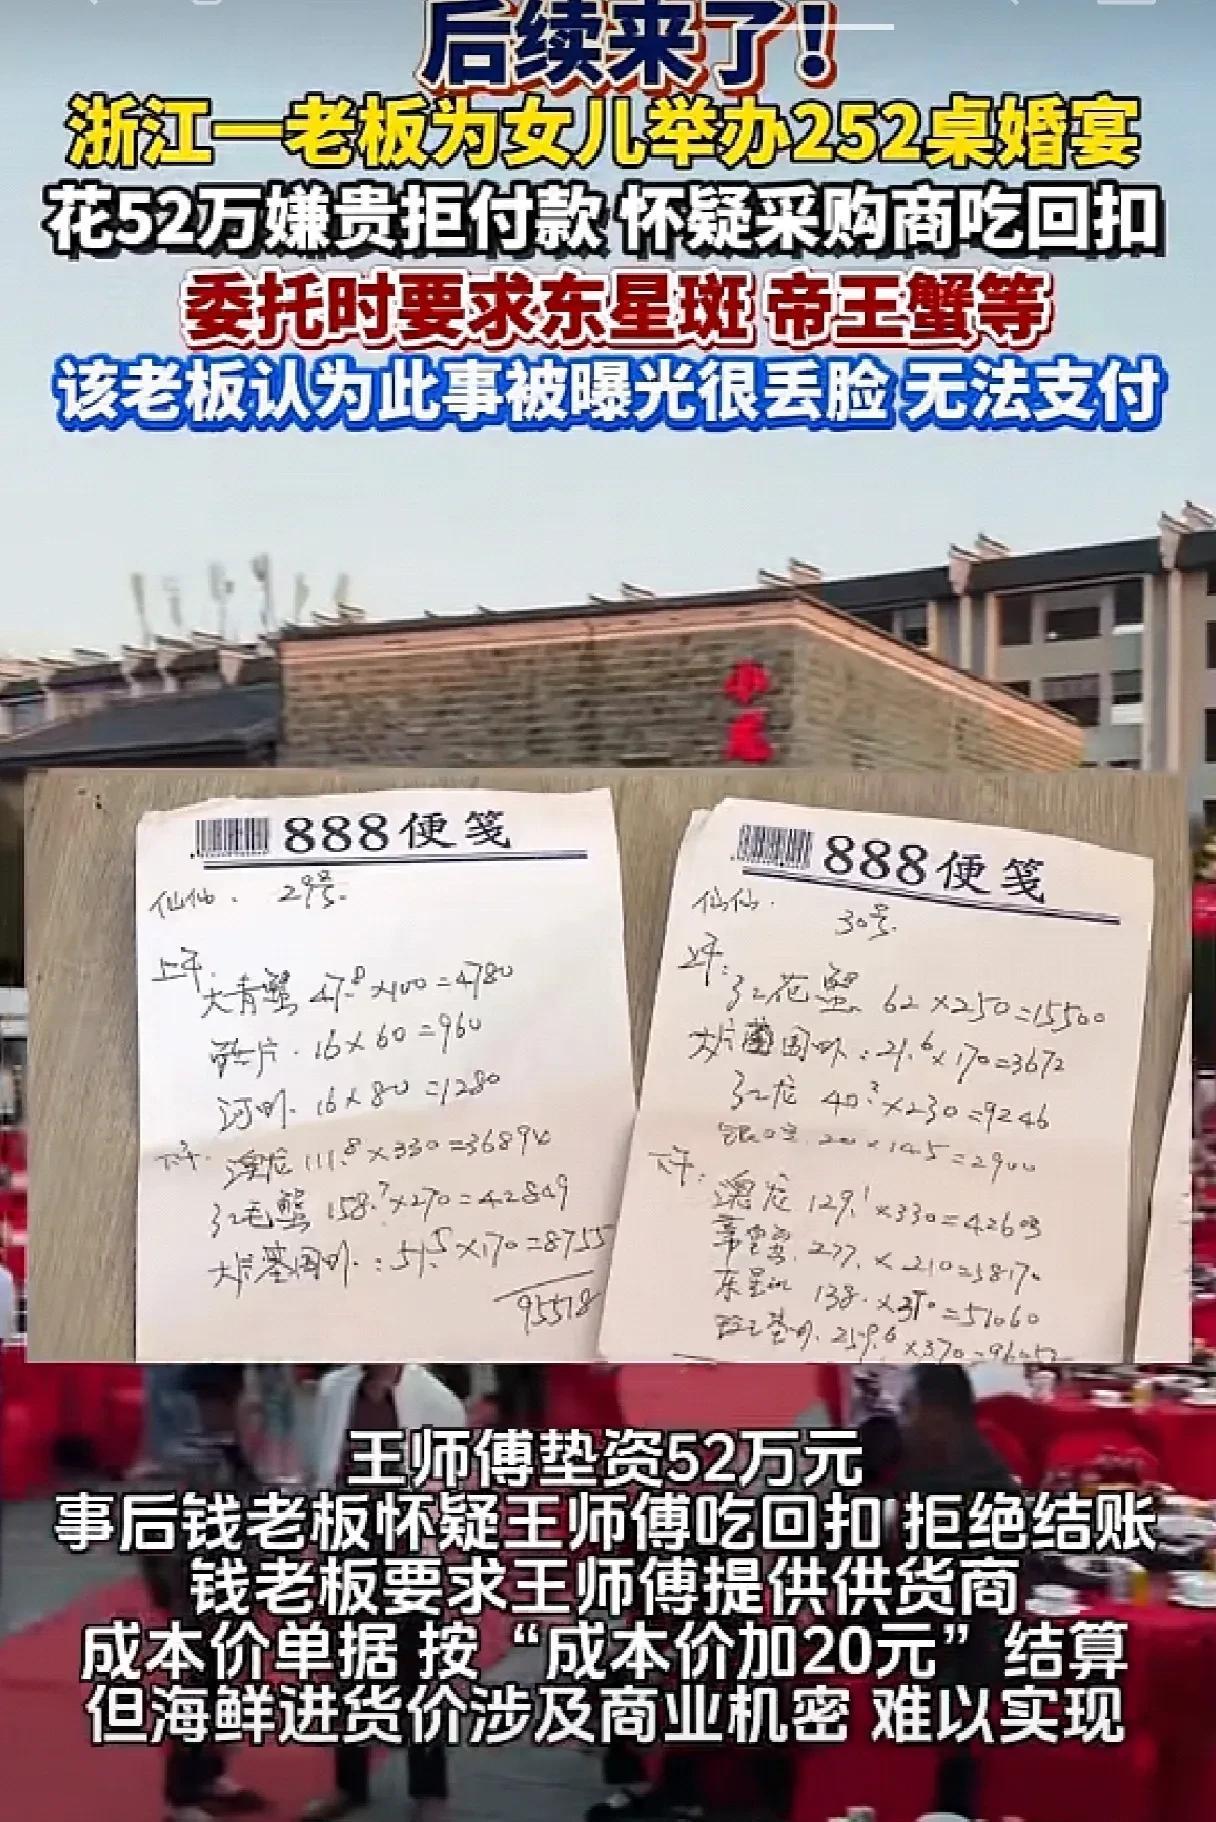 后续来了！
浙江一老板为女儿举办252桌婚宴
花52万嫌贵拒付款 怀疑采购商吃回扣
委托时要求东星斑 帝王蟹等
该老板认为此事被曝光很丢脸 无法支付
888便笺
仙仙. 29号.
上午.
大青蟹 47.8×100=4780
片. 16×60=960
河虾. 16×80=1280
下午. 澳龙 111.8×330=36894
红毛蟹 158.7×270=42849
大片基围虾.: 51.5×170=8755
95518
888便笺
仙仙. 30号.
上午:
红花蟹 62×250=15500
大片基围虾.: 21.6×170=3672
红龙 40.2×230=9246
20×145=2900
下午: 澳龙 129.1×330=42603
277.×210=58170
东星斑 138.×370=51060
259.6×370=96052
王师傅垫资52万元
事后钱老板怀疑王师傅吃回扣 拒绝结账
钱老板要求王师傅提供供货商
成本价单据 按“成本价加20元”结算
但海鲜进货价涉及商业机密 难以实现